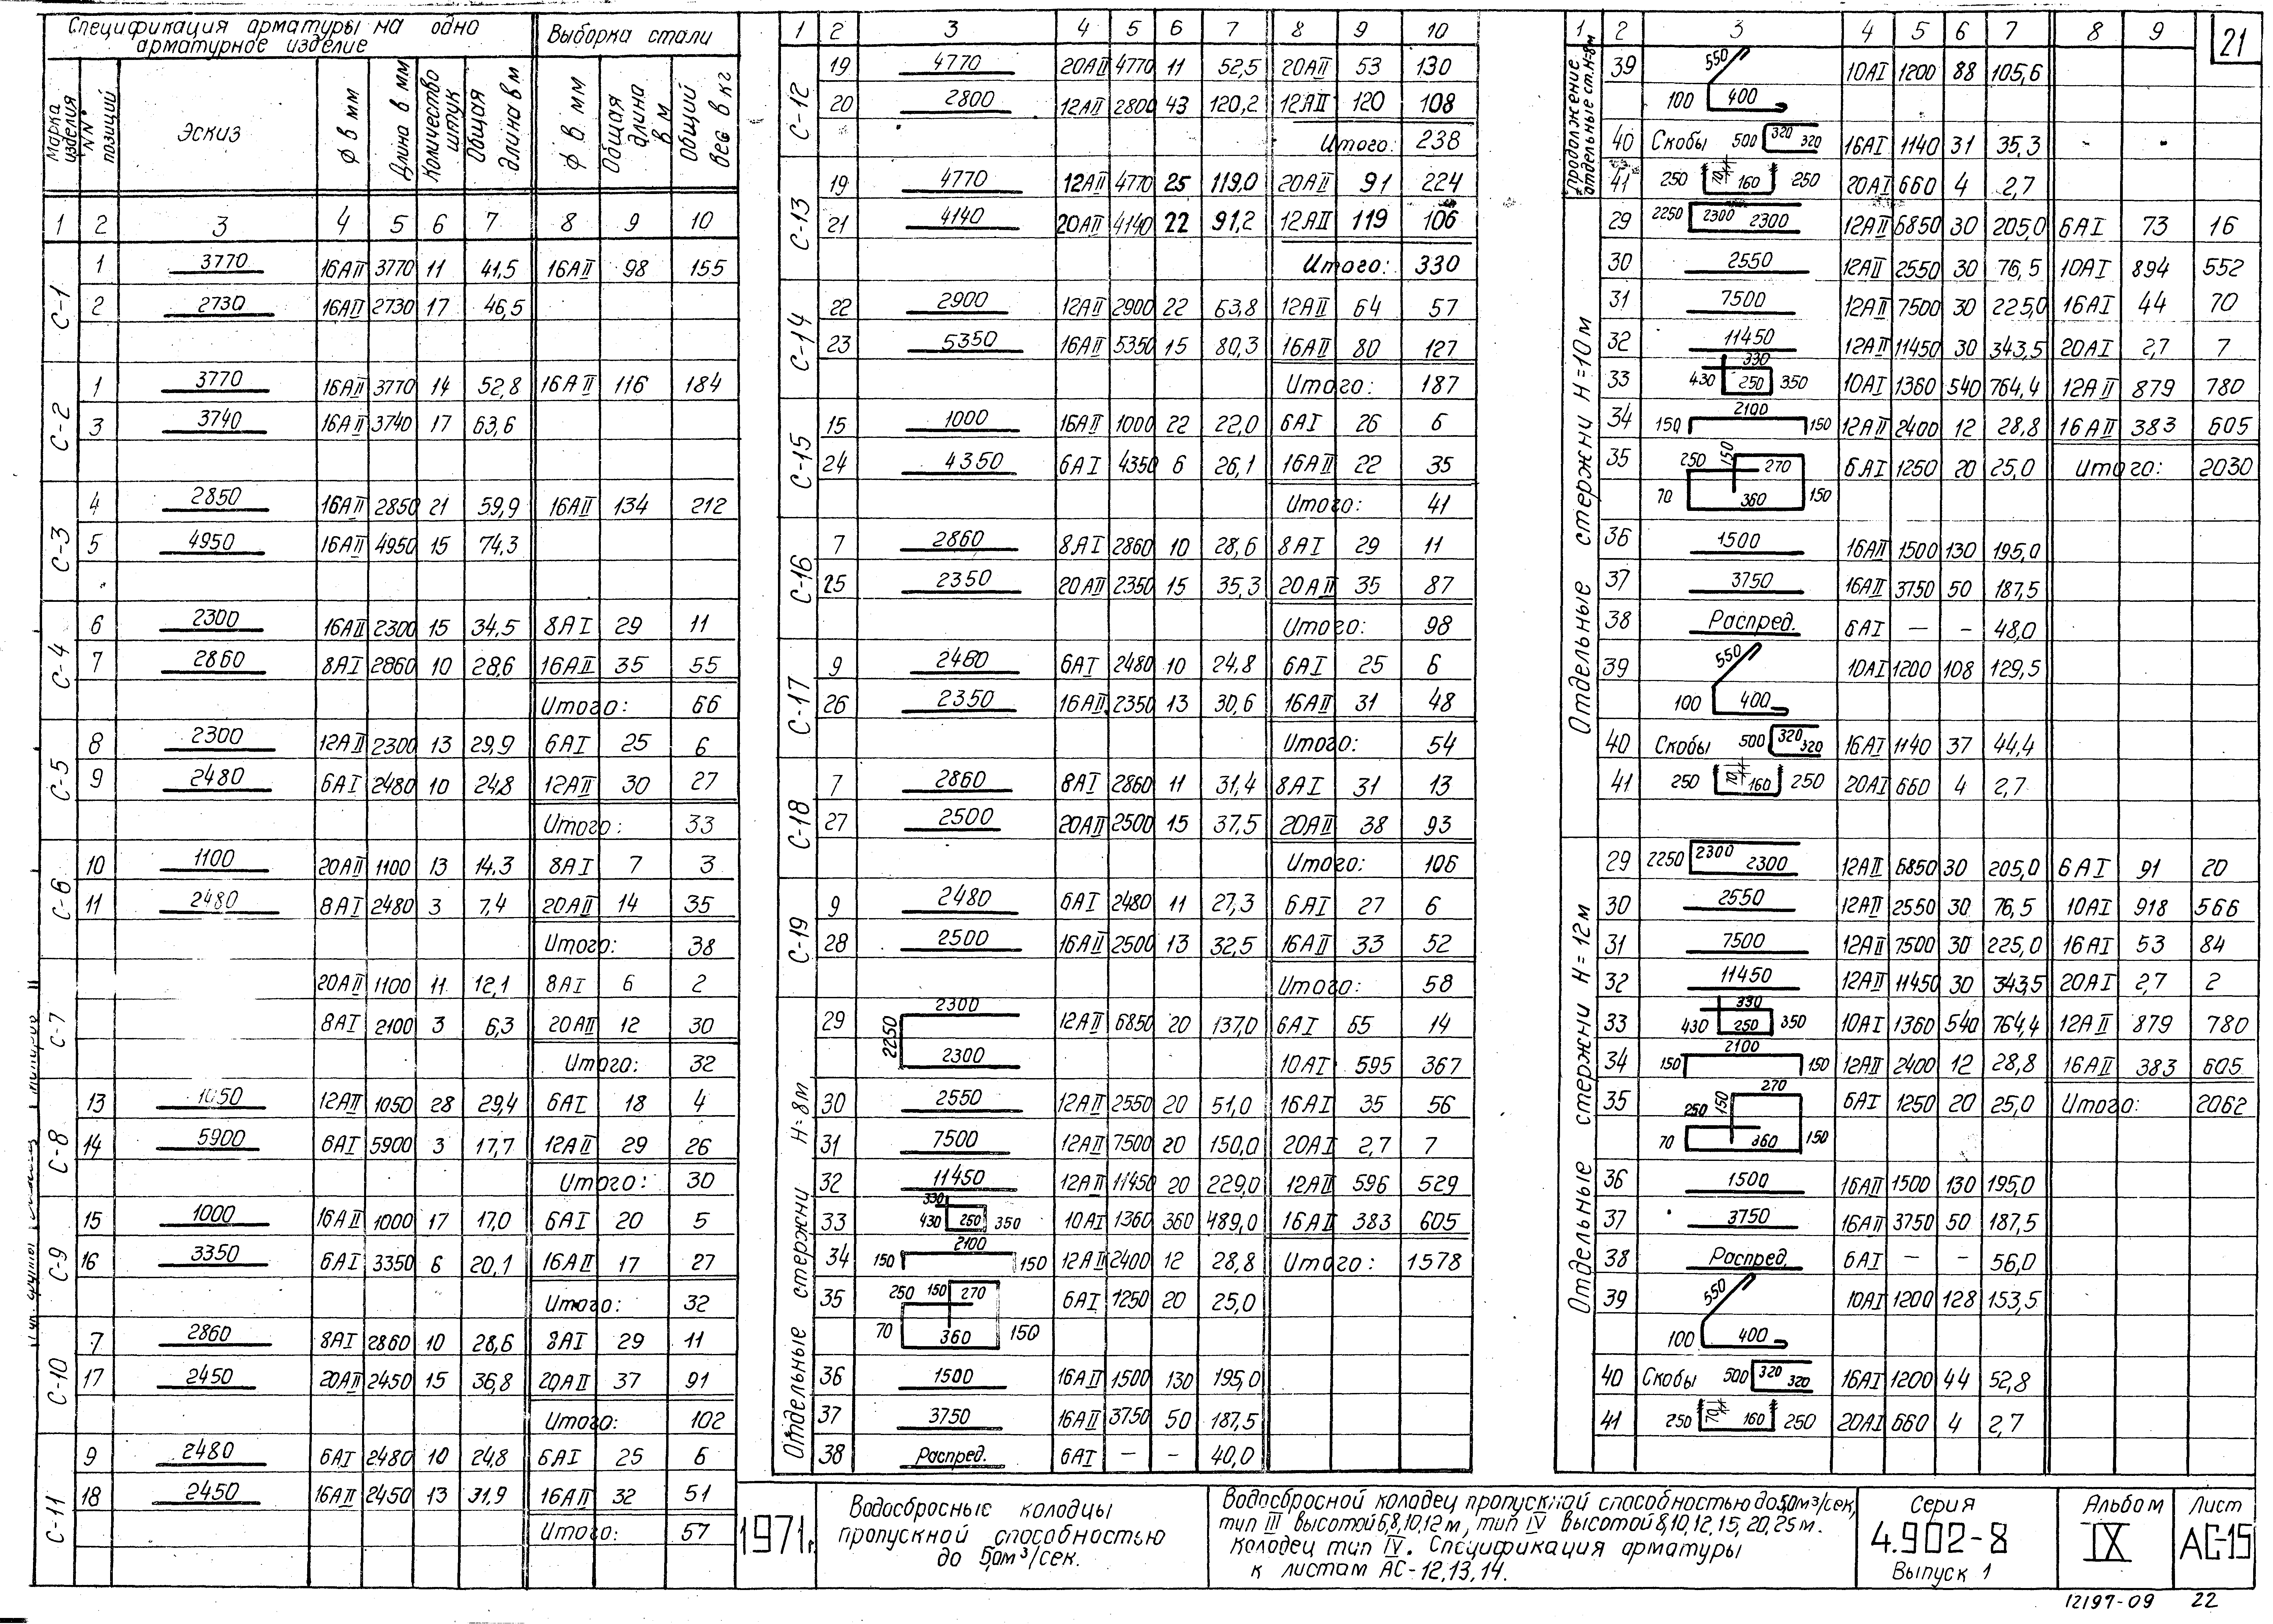 Спецификация арматуры на одно арматурное изделие | Выборка стали
Марка изделия | NN° позиций | Эскиз | ф в мм | Длина в мм | Количество штук | Общая длина в м | ф в мм | Общая длина в м | Общий вес в кг
1 | 2 | 3 | 4 | 5 | 6 | 7 | 8 | 9 | 10
С-1
1 | 3770 | 16АII | 3770 | 11 | 41,5 | 16АII | 98 | 155
2 | 2730 | 16АII | 2730 | 17 | 46,5
С-2
1 | 3770 | 16АII | 3770 | 14 | 52,8 | 16АII | 116 | 184
3 | 3740 | 16АII | 3740 | 17 | 63,6
С-3
4 | 2850 | 16АII | 2850 | 21 | 59,9 | 16АII | 134 | 212
5 | 4950 | 16АII | 4950 | 15 | 74,3
С-4
6 | 2300 | 16АII | 2300 | 15 | 34,5 | 8АI | 29 | 11
7 | 2860 | 8АI | 2860 | 10 | 28,6 | 16АII | 35 | 55
Итого: 66
С-5
8 | 2300 | 12АII | 2300 | 13 | 29,9 | 6АI | 25 | 6
9 | 2480 | 6АI | 2480 | 10 | 24,8 | 12АII | 30 | 27
Итого: 33
С-6
10 | 1100 | 20АII | 1100 | 13 | 14,3 | 8АI | 7 | 3
11 | 2480 | 8АI | 2480 | 3 | 7,4 | 20АII | 14 | 35
Итого: 38
С-7
20АII | 1100 | 11 | 12,1 | 8АI | 6 | 2
8АI | 2100 | 3 | 6,3 | 20АII | 12 | 30
Итого: 32
С-8
13 | 1050 | 12АII | 1050 | 28 | 29,4 | 6АI | 18 | 4
14 | 5900 | 6АI | 5900 | 3 | 17,7 | 12АII | 29 | 26
Итого: 30
С-9
15 | 1000 | 16АII | 1000 | 17 | 17,0 | 6АI | 20 | 5
16 | 3350 | 6АI | 3350 | 6 | 20,1 | 16АII | 17 | 27
Итого: 32
С-10
7 | 2860 | 8АI | 2860 | 10 | 28,6 | 8АI | 29 | 11
17 | 2450 | 20АII | 2450 | 15 | 36,8 | 20АII | 37 | 91
Итого: 102
С-11
9 | 2480 | 6АI | 2480 | 10 | 24,8 | 6АI | 25 | 6
18 | 2450 | 16АII | 2450 | 13 | 31,9 | 16АII | 32 | 51
Итого: 57
1 | 2 | 3 | 4 | 5 | 6 | 7 | 8 | 9 | 10
С-12
19 | 4770 | 20АII | 4770 | 11 | 52,5 | 20АII | 53 | 130
20 | 2800 | 12АII | 2800 | 43 | 120,2 | 12АII | 120 | 108
Итого: 238
С-13
19 | 4770 | 12АII | 4770 | 25 | 119,0 | 20АII | 91 | 224
21 | 4140 | 20АII | 4140 | 22 | 91,2 | 12АII | 119 | 106
Итого: 330
С-14
22 | 2900 | 12АII | 2900 | 22 | 63,8 | 12АII | 64 | 57
23 | 5350 | 16АII | 5350 | 15 | 80,3 | 16АII | 80 | 127
Итого: 187
С-15
15 | 1000 | 16АII | 1000 | 22 | 22,0 | 6АI | 26 | 6
24 | 4350 | 6АI | 4350 | 6 | 26,1 | 16АII | 22 | 35
Итого: 41
С-16
7 | 2860 | 8АI | 2860 | 10 | 28,6 | 8АI | 29 | 11
25 | 2350 | 20АII | 2350 | 15 | 35,3 | 20АII | 35 | 87
Итого: 98
С-17
9 | 2480 | 6АI | 2480 | 10 | 24,8 | 6АI | 25 | 6
26 | 2350 | 16АII | 2350 | 13 | 30,6 | 16АII | 31 | 48
Итого: 54
С-18
7 | 2860 | 8АI | 2860 | 11 | 31,4 | 8АI | 31 | 13
27 | 2500 | 20АII | 2500 | 15 | 37,5 | 20АII | 38 | 93
Итого: 106
С-19
9 | 2480 | 6АI | 2480 | 11 | 27,3 | 6АI | 27 | 6
28 | 2500 | 16АII | 2500 | 13 | 32,5 | 16АII | 33 | 52
Итого: 58
Отдельные стержни Н=8м
29 | 2300 2250 2300 | 12АII | 6850 | 20 | 137,0 | 6АI | 65 | 14
10АI | 595 | 367
30 | 2550 | 12АII | 2550 | 20 | 51,0 | 16АI | 35 | 56
31 | 7500 | 12АII | 7500 | 20 | 150,0 | 20АI | 2,7 | 7
32 | 11450 | 12АII | 11450 | 20 | 229,0 | 12АII | 596 | 529
33 | 330 430 250 350 | 10АI | 1360 | 360 | 489,0 | 16АII | 383 | 605
34 | 150 2100 150 | 12АII | 2400 | 12 | 28,8 | Итого: 1578
35 | 250 150 270 70 360 150 | 6АI | 1250 | 20 | 25,0
36 | 1500 | 16АII | 1500 | 130 | 195,0
37 | 3750 | 16АII | 3750 | 50 | 187,5
38 | Распред. | 6АI | – | – | 40,0
1 | 2 | 3 | 4 | 5 | 6 | 7 | 8 | 9
21
Продолжение отдельные ст. Н=8м
39 | 550 100 400 | 10АI | 1200 | 88 | 105,6
40 | Скобы 500 320 320 | 16АI | 1140 | 31 | 35,3 | -
41 | 250 70 160 250 | 20АI | 660 | 4 | 2,7
Отдельные стержни Н=10м
29 | 2250 2300 2300 | 12АII | 6850 | 30 | 205,0 | 6АI | 73 | 16
30 | 2550 | 12АII | 2550 | 30 | 76,5 | 10АI | 894 | 552
31 | 7500 | 12АII | 7500 | 30 | 225,0 | 16АI | 44 | 70
32 | 11450 | 12АII | 11450 | 30 | 343,5 | 20АI | 2,7 | 7
33 | 330 430 250 350 | 10АI | 1360 | 540 | 764,4 | 12АII | 879 | 780
34 | 150 2100 150 | 12АII | 2400 | 12 | 28,8 | 16АII | 383 | 605
35 | 250 150 270 70 360 150 | 6АI | 1250 | 20 | 25,0 | Итого: 2030
36 | 1500 | 16АII | 1500 | 130 | 195,0
37 | 3750 | 16АII | 3750 | 50 | 187,5
38 | Распред. | 6АI | – | – | 48,0
39 | 550 100 400 | 10АI | 1200 | 108 | 129,5
40 | Скобы 500 320 320 | 16АI | 1140 | 37 | 44,4
41 | 250 70 160 250 | 20АI | 660 | 4 | 2,7
Отдельные стержни Н=12м
29 | 2250 2300 2300 | 12АII | 6850 | 30 | 205,0 | 6АI | 91 | 20
30 | 2550 | 12АII | 2550 | 30 | 76,5 | 10АI | 918 | 566
31 | 7500 | 12АII | 7500 | 30 | 225,0 | 16АI | 53 | 84
32 | 11450 | 12АII | 11450 | 30 | 343,5 | 20АI | 2,7 | 2
33 | 330 430 250 350 | 10АI | 1360 | 540 | 764,4 | 12АII | 879 | 780
34 | 150 2100 150 | 12АII | 2400 | 12 | 28,8 | 16АII | 383 | 605
35 | 250 150 270 70 360 150 | 6АI | 1250 | 20 | 25,0 | Итого: 2062
36 | 1500 | 16АII | 1500 | 130 | 195,0
37 | 3750 | 16АII | 3750 | 50 | 187,5
38 | Распред. | 6АI | – | – | 56,0
39 | 550 100 400 | 10АI | 1200 | 128 | 153,5
40 | Скобы 500 320 320 | 16АI | 1200 | 44 | 52,8
41 | 250 70 160 250 | 20АI | 660 | 4 | 2,7
1971г.
Водосбросные колодцы
пропускной способностью
до 5,0м³/сек.
Водосбросной колодец пропускной способностью до 5,0м³/сек,
тип III высотой 6,8,10,12м, тип IV высотой 8,10,12,15,20,25м.
Колодец тип IV. Спецификация арматуры
к листам АС-12,13,14.
Серия
4.902-8
Выпуск 1
Альбом
IX
Лист
АС-15
12197-09 22